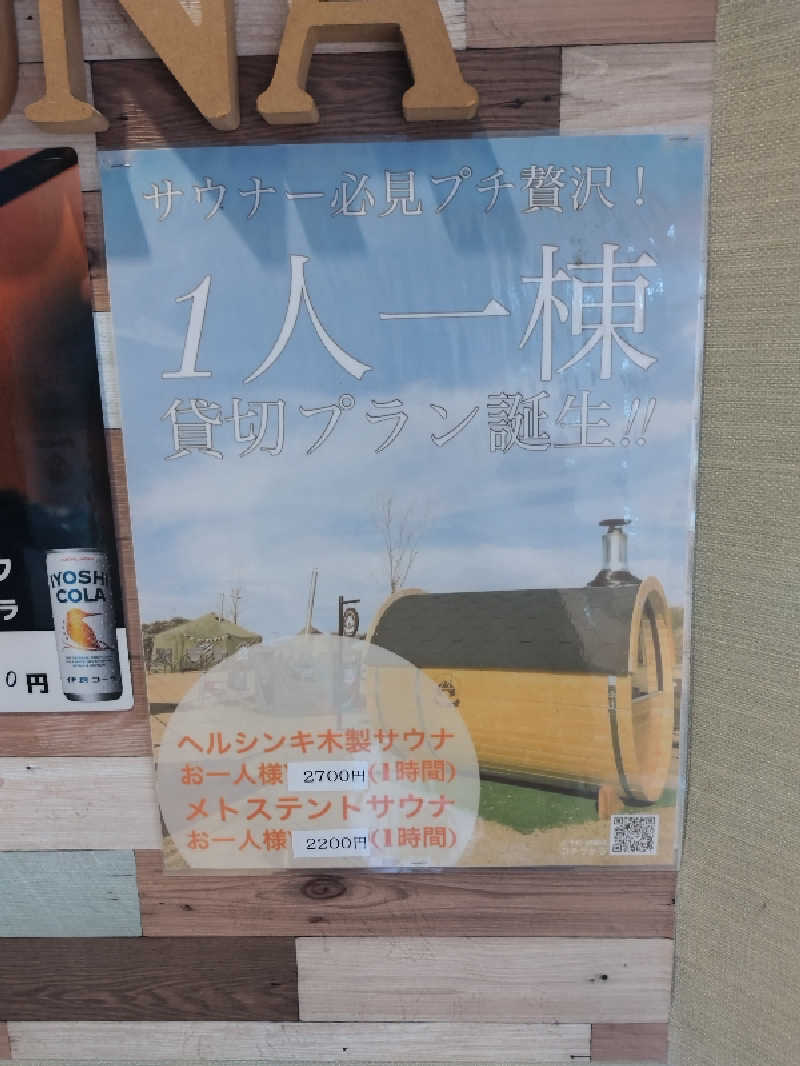 UNA
サウナー必見プチ贅沢！
1人一棟
貸切プラン誕生!!
ヘルシンキ木製サウナ
お一人様 2700円(1時間)
メトステントサウナ
お一人様 2200円(1時間)
IYOSHI
COLA
伊良コーラ
0円